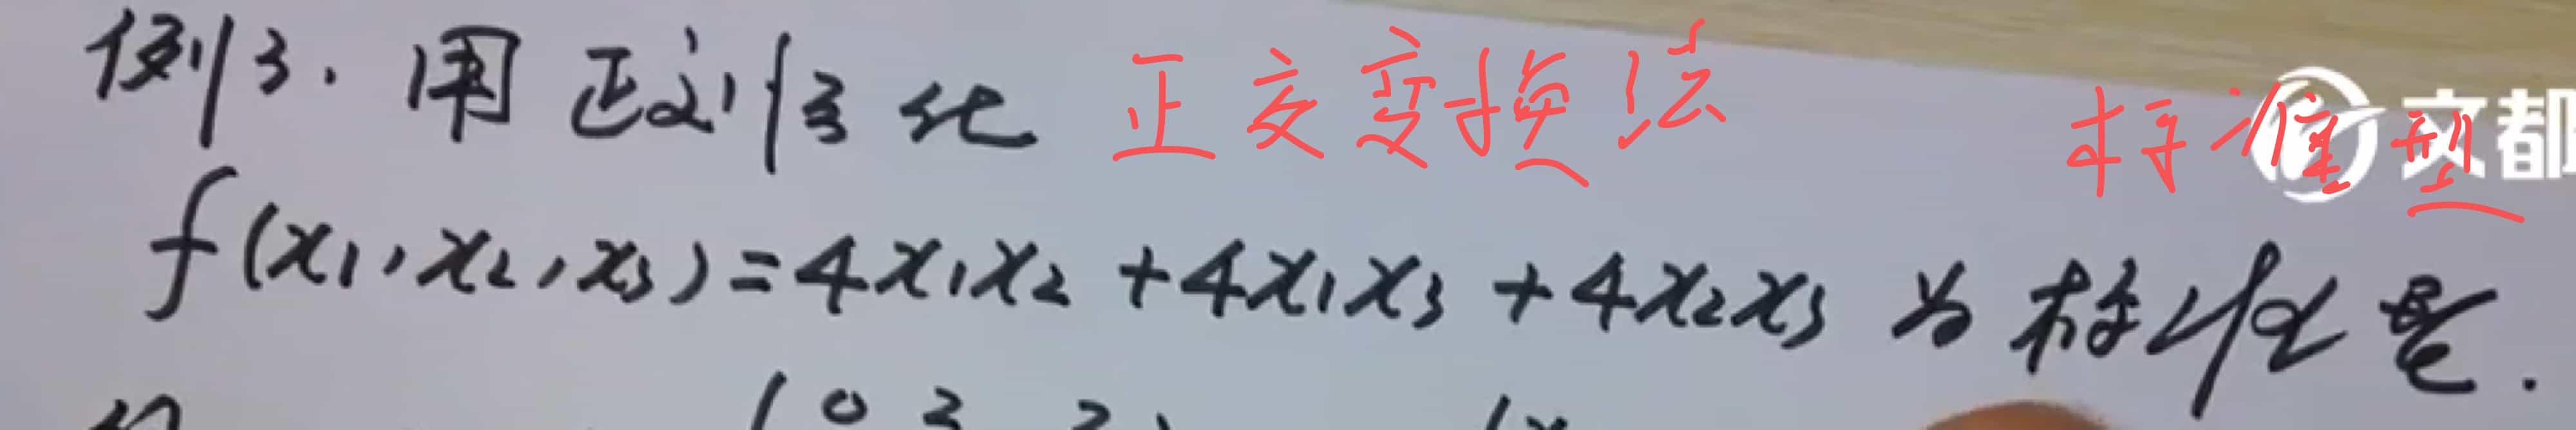 例3. 用正交变换化 正交变换法
标准型 文都
f(x₁,x₂,x₃)=4x₁x₂+4x₁x₃+4x₂x₃为标准型.
0 2 2